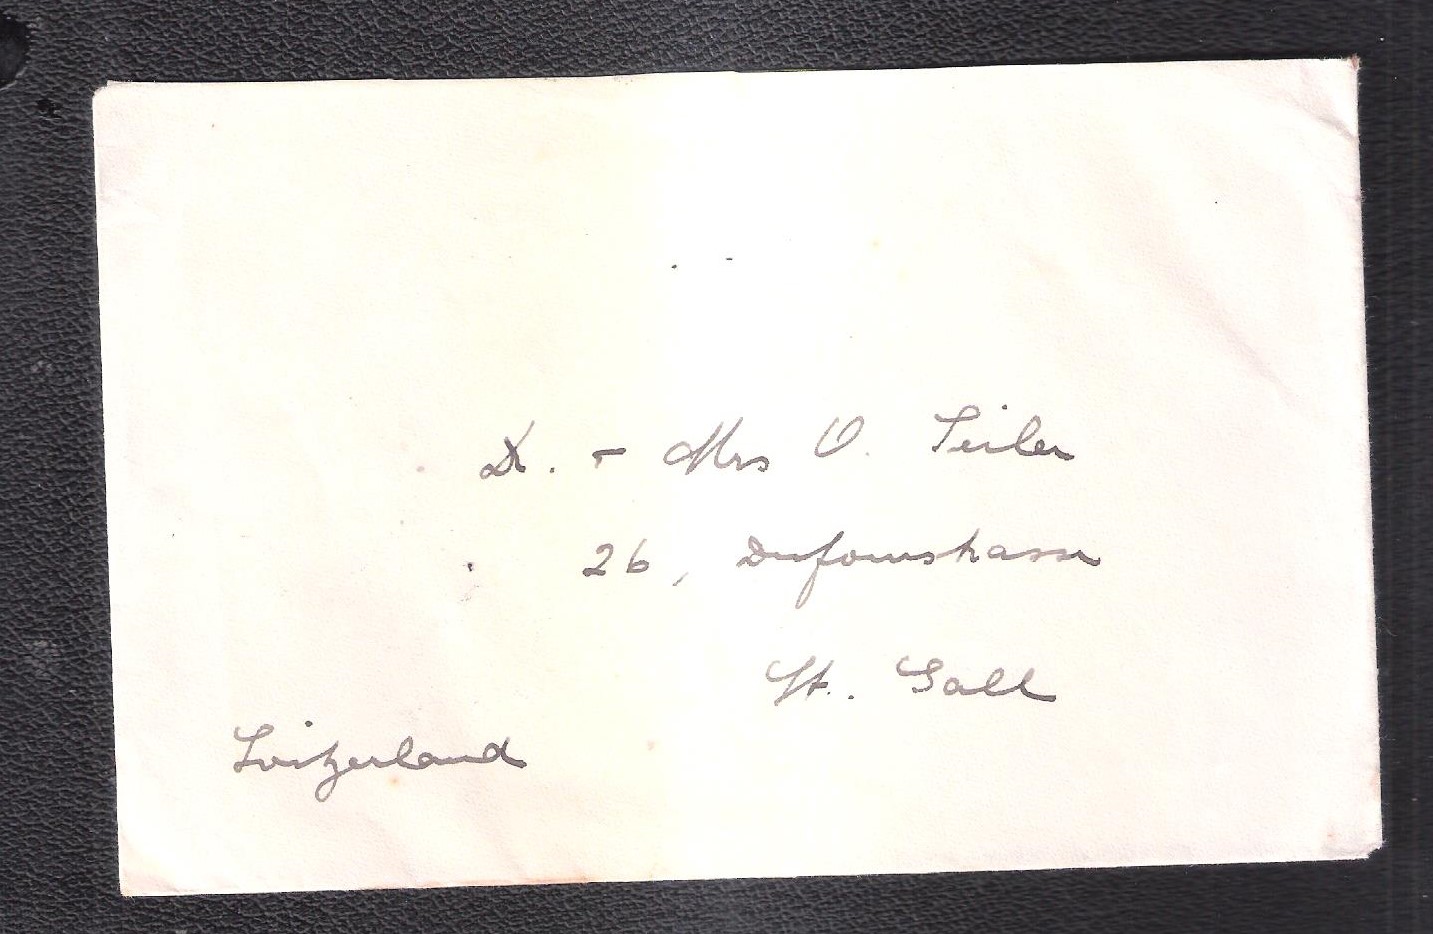 Dr. + Mrs O. Seiler
26, Dufourstrasse
St. Gall
Switzerland